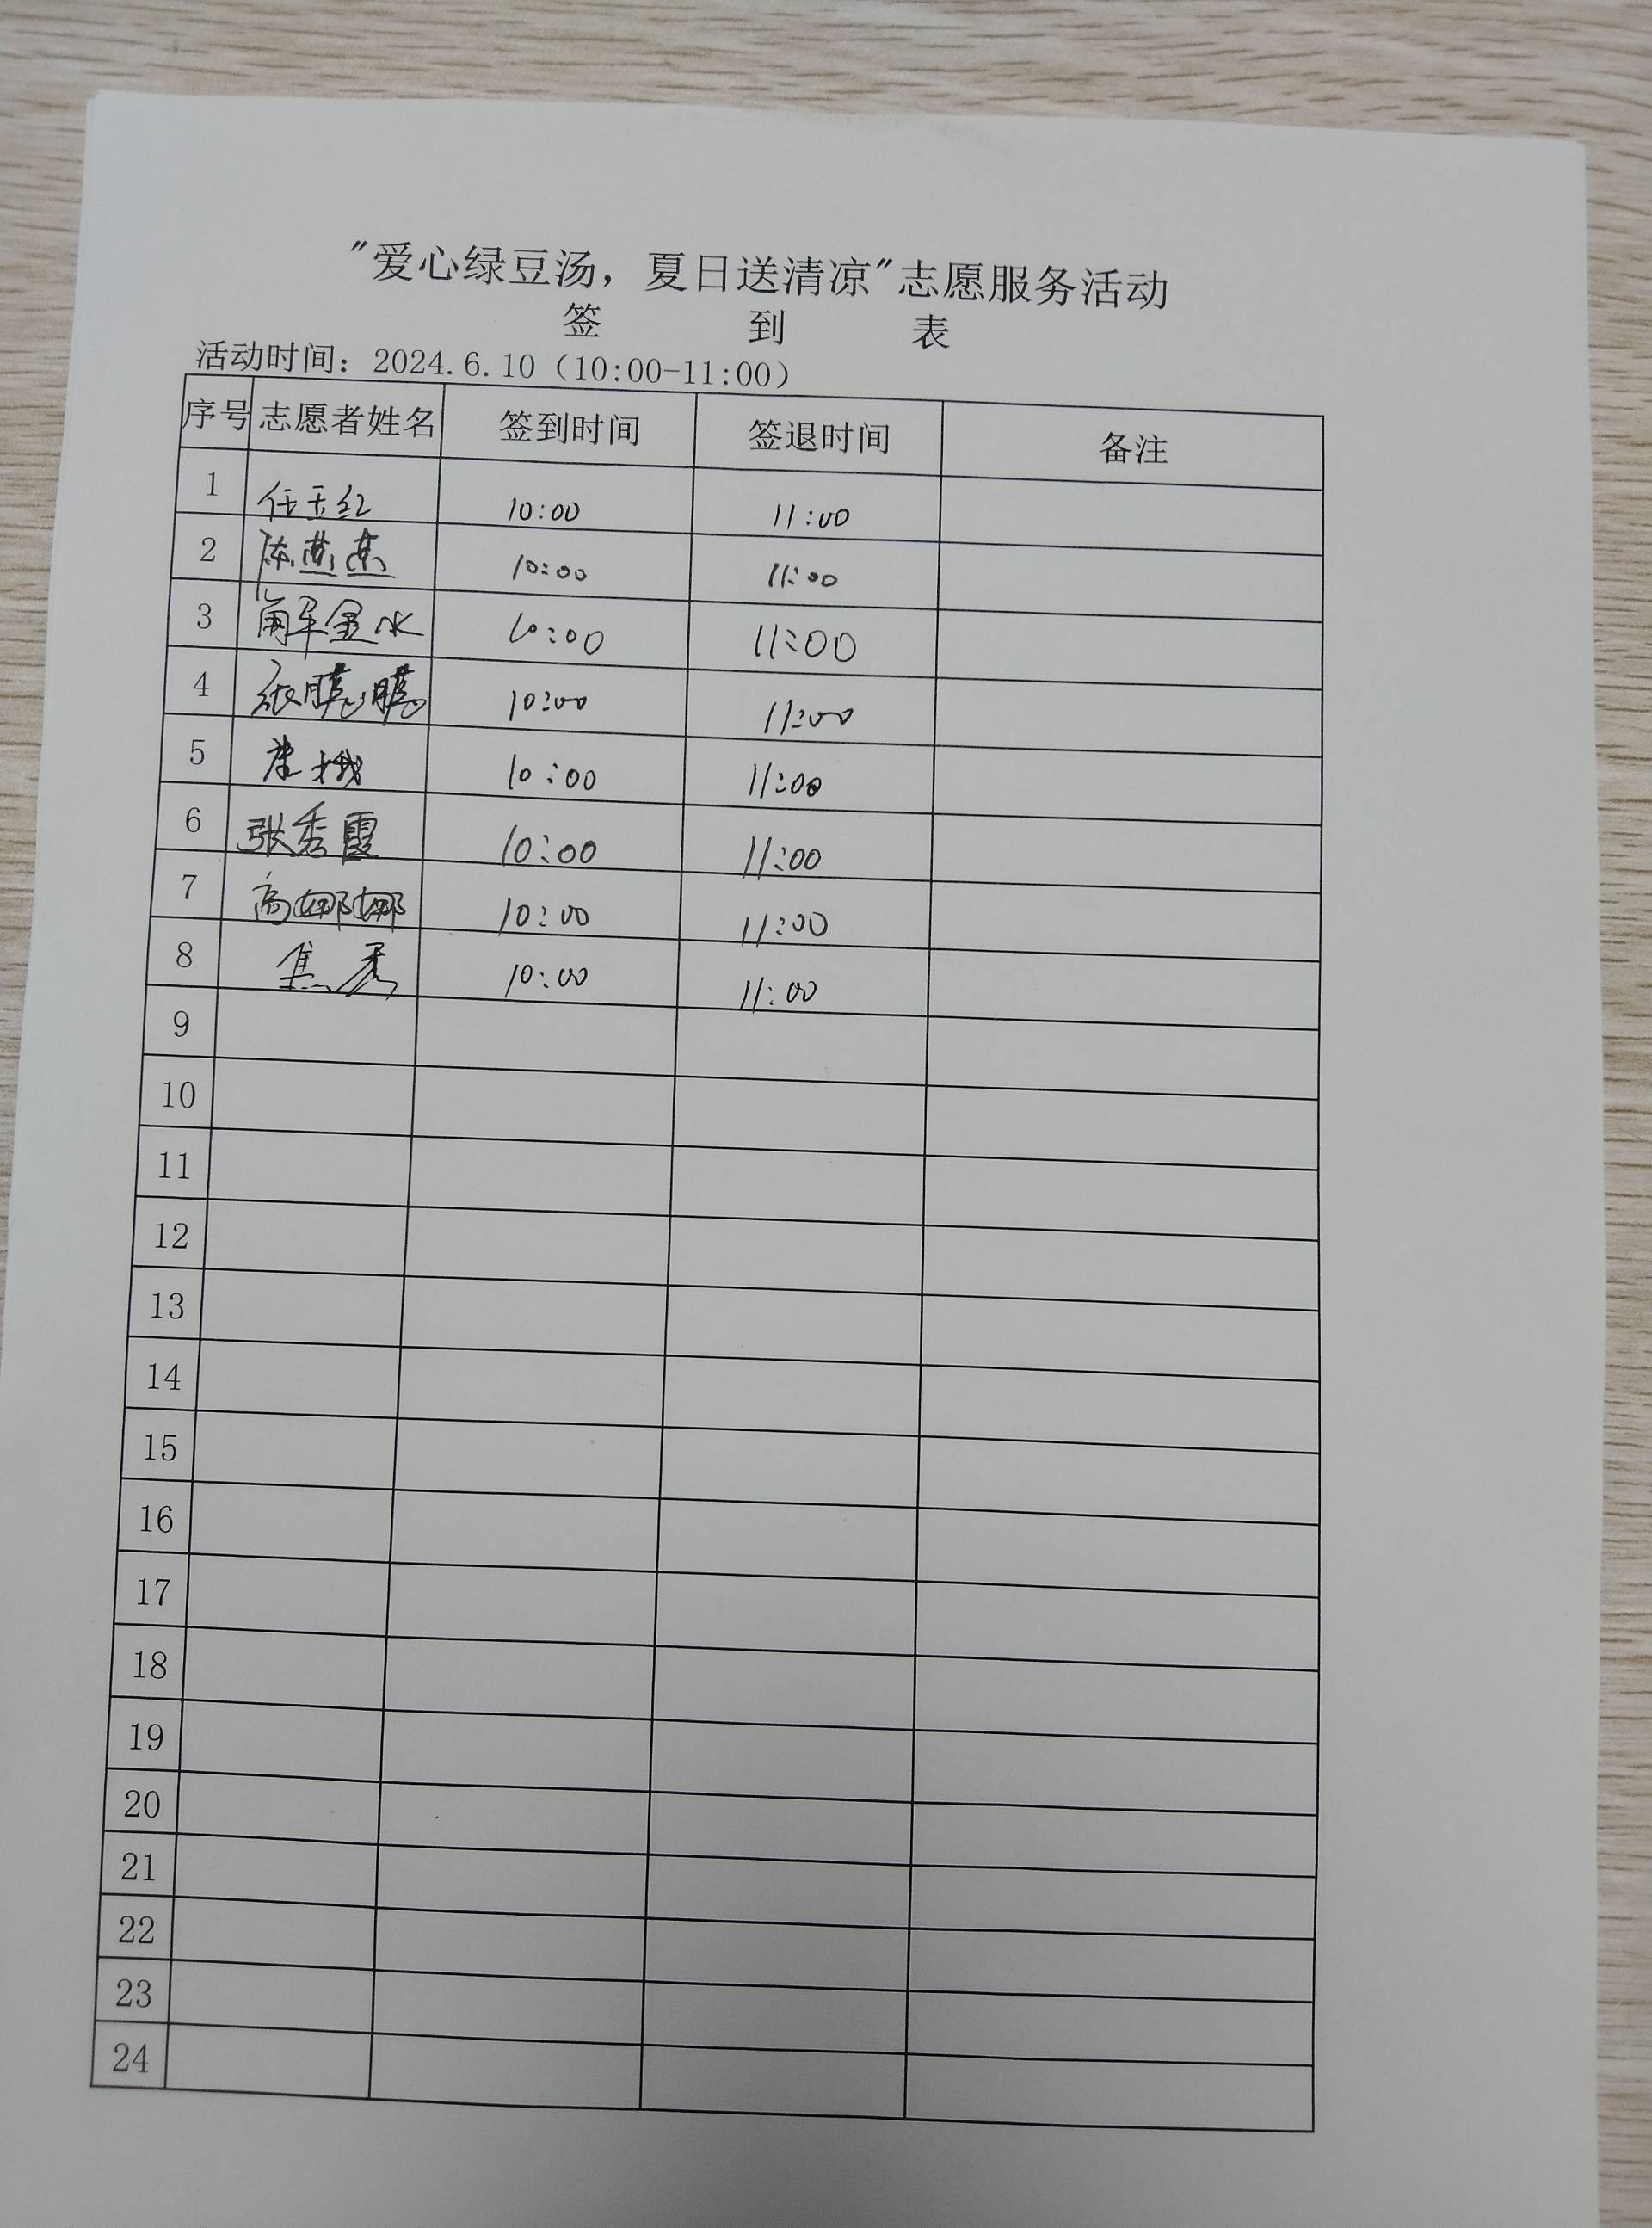 "爱心绿豆汤，夏日送清凉"志愿服务活动
签 到 表
活动时间：2024.6.10（10:00-11:00）
序号 志愿者姓名 签到时间 签退时间 备注
1 任玉红 10:00 11:00
2 陈燕燕 10:00 11:00
3 解金水 10:00 11:00
4 10:00 11:00
5 10:00 11:00
6 张秀霞 10:00 11:00
7 高娜娜 10:00 11:00
8 焦秀 10:00 11:00
9
10
11
12
13
14
15
16
17
18
19
20
21
22
23
24